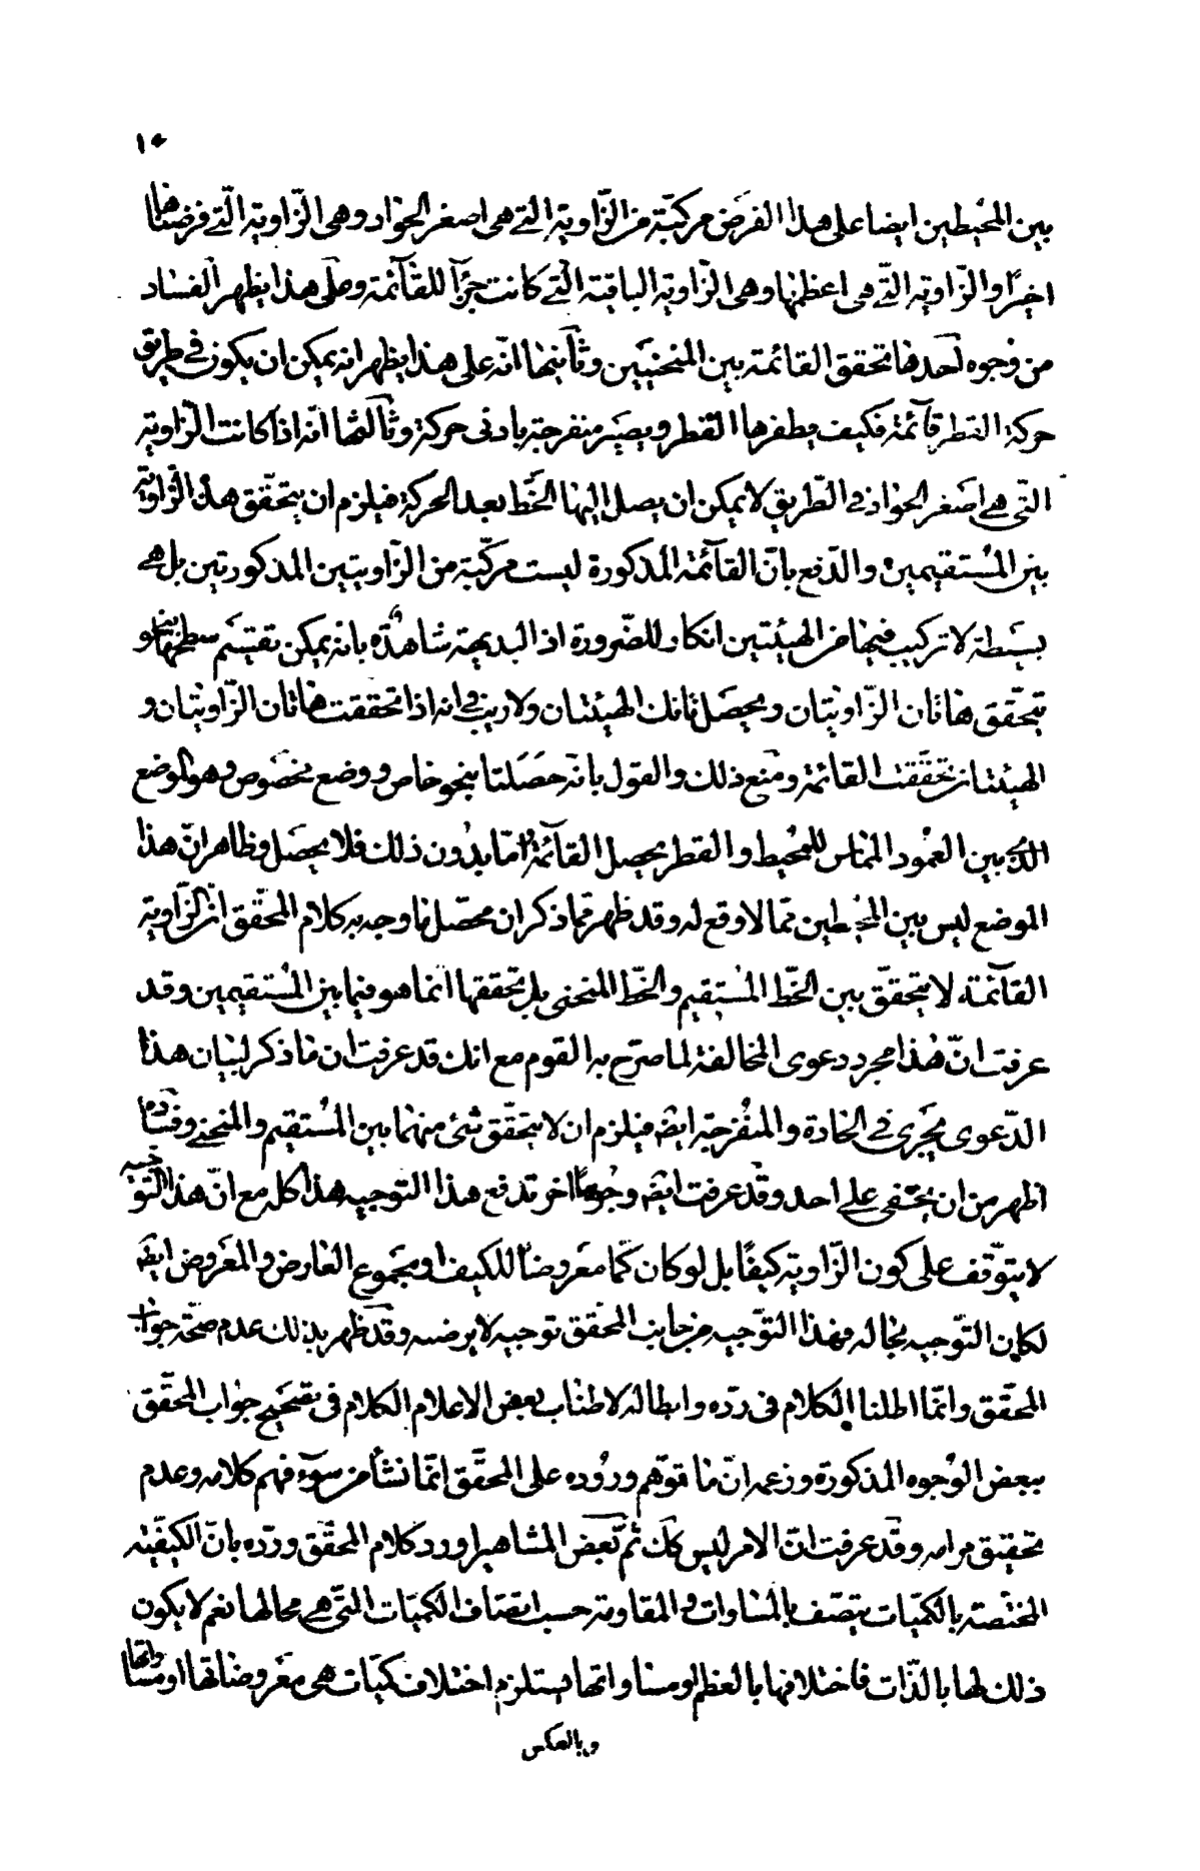 ١٥
بين المحيطين ايضا على هذا الفرض مركبّة من الزّاوية التى هى اصغر الحوادّ وهى الزّاوية الّتى فرضناها
اخيرًا والزّاوية التّى هى اعظمها وهى الزّاوية الباقية الّتى كانت جزءًا للقآئمة وعلى هذا يظهر الفساد
من وجوه احدها تحقق القائمة بين المنحنيين وثانيها انّه على هذا يظهر انه يمكن ان يكون فى طريق
حركة القطر قآئمة فكيف يطفرها القطر ويصير منفرجة بادنى حركة وثالثها انّه اذا كانت الزّاوية
التّى هى اصغر الحوادّ فى الطّريق لا يمكن ان يصل اليها الخّط بعد الحركة فيلزم ان يتحقّق هذه الزّاوية
بين المُستقيمين والدّفع بانّ القآئمة المذكورة ليست مركّبة من الزّاويتين المذكورتين بل هى
بسَيطة لا تركيب فيها من الهيئتين انكار للضّرورة اذ البديهة شاهدة بانه يمكن تقسيم سطحها بنحو
يتحقّق هاتان الزّاويتان ويحصل تانك الهيئتان ولا ريب فى انه اذا تحققت هاتان الزّاويتان و
الهيئتان تحققت القائمة ومنع ذلك والقول بانّه حصَلتا بنحو خاص ووضع مخصوص وهو الوضع
الذى بين العمود المماس للمحيط والقطر يحصل القآئمة امّا بدُون ذلك فلا يحصل وظاهر انّ هذا
الموضع ليس بين المحيطين ممّا لا وقع له وقد ظهر ممّا ذكر ان محصّل ما وجه به كلام المحقّق انّ الزّاوية
القآئمة لا يتحقّق بين الخّط المُستقيم والخّط المنحنى بل تحققها انّما هو فيما بين المُستقيمين وقد
عرفت انّ هذا مجرد دعوى المخالفة لما صرّح به القوم مع انك قد عرفت ان ما ذكر لبيان هذا
الدّعوى يجَرى فى الحادة والمنُفرجة ايضه فيلزم ان لا يتحقّق شئ منهما بين المُستقيم والمنحنى وفسَاده
اظهر من ان يخفى على احد وقد عرفت ايضه وجُوهًا اخر تدفع هذا التوجيه هذا كله مع انّ هذا التوجيه
لا يتوّقف على كون الزّاوية كيفًا بل لو كان كمّا معَروضًا للكيف او مجَموع العارض والمعَروض ايضه
لكان التّوجيه بحاله فهذا التوّجيه من جانب المحقق توجيه لا يرضىه وقد ظهر بذلك عدم صحّة جواب
المحقّق وانمّا اطلنا الكلام فى ردّه وابطاله لاطناب بعض الاعلام الكلام فى تصحيح جواب المحقّق
ببعض الوُجوه المذكورة وزعمه انّ ما توهّم ورُوده على المحقّق انمّا نشأ من سوء فهم كلامه وعدم
تحقيق مرامه وقد عرفت انّ الامر ليس كك ثم بعض المشاهير اورد كلام المحقّق وردّه بانّ الكيفيّة
المختصّة بالكميّات يتصّف بالمساوات والمفاوتة حسب اتصّاف الكميّات التّى هى محالها نعم لا يكون
ذلك لها بالذّات فاختلافها بالعظم او مساواتها يستلزم اختلاف كميّات هى معَروضاتها او مساواتها
وبالعكس